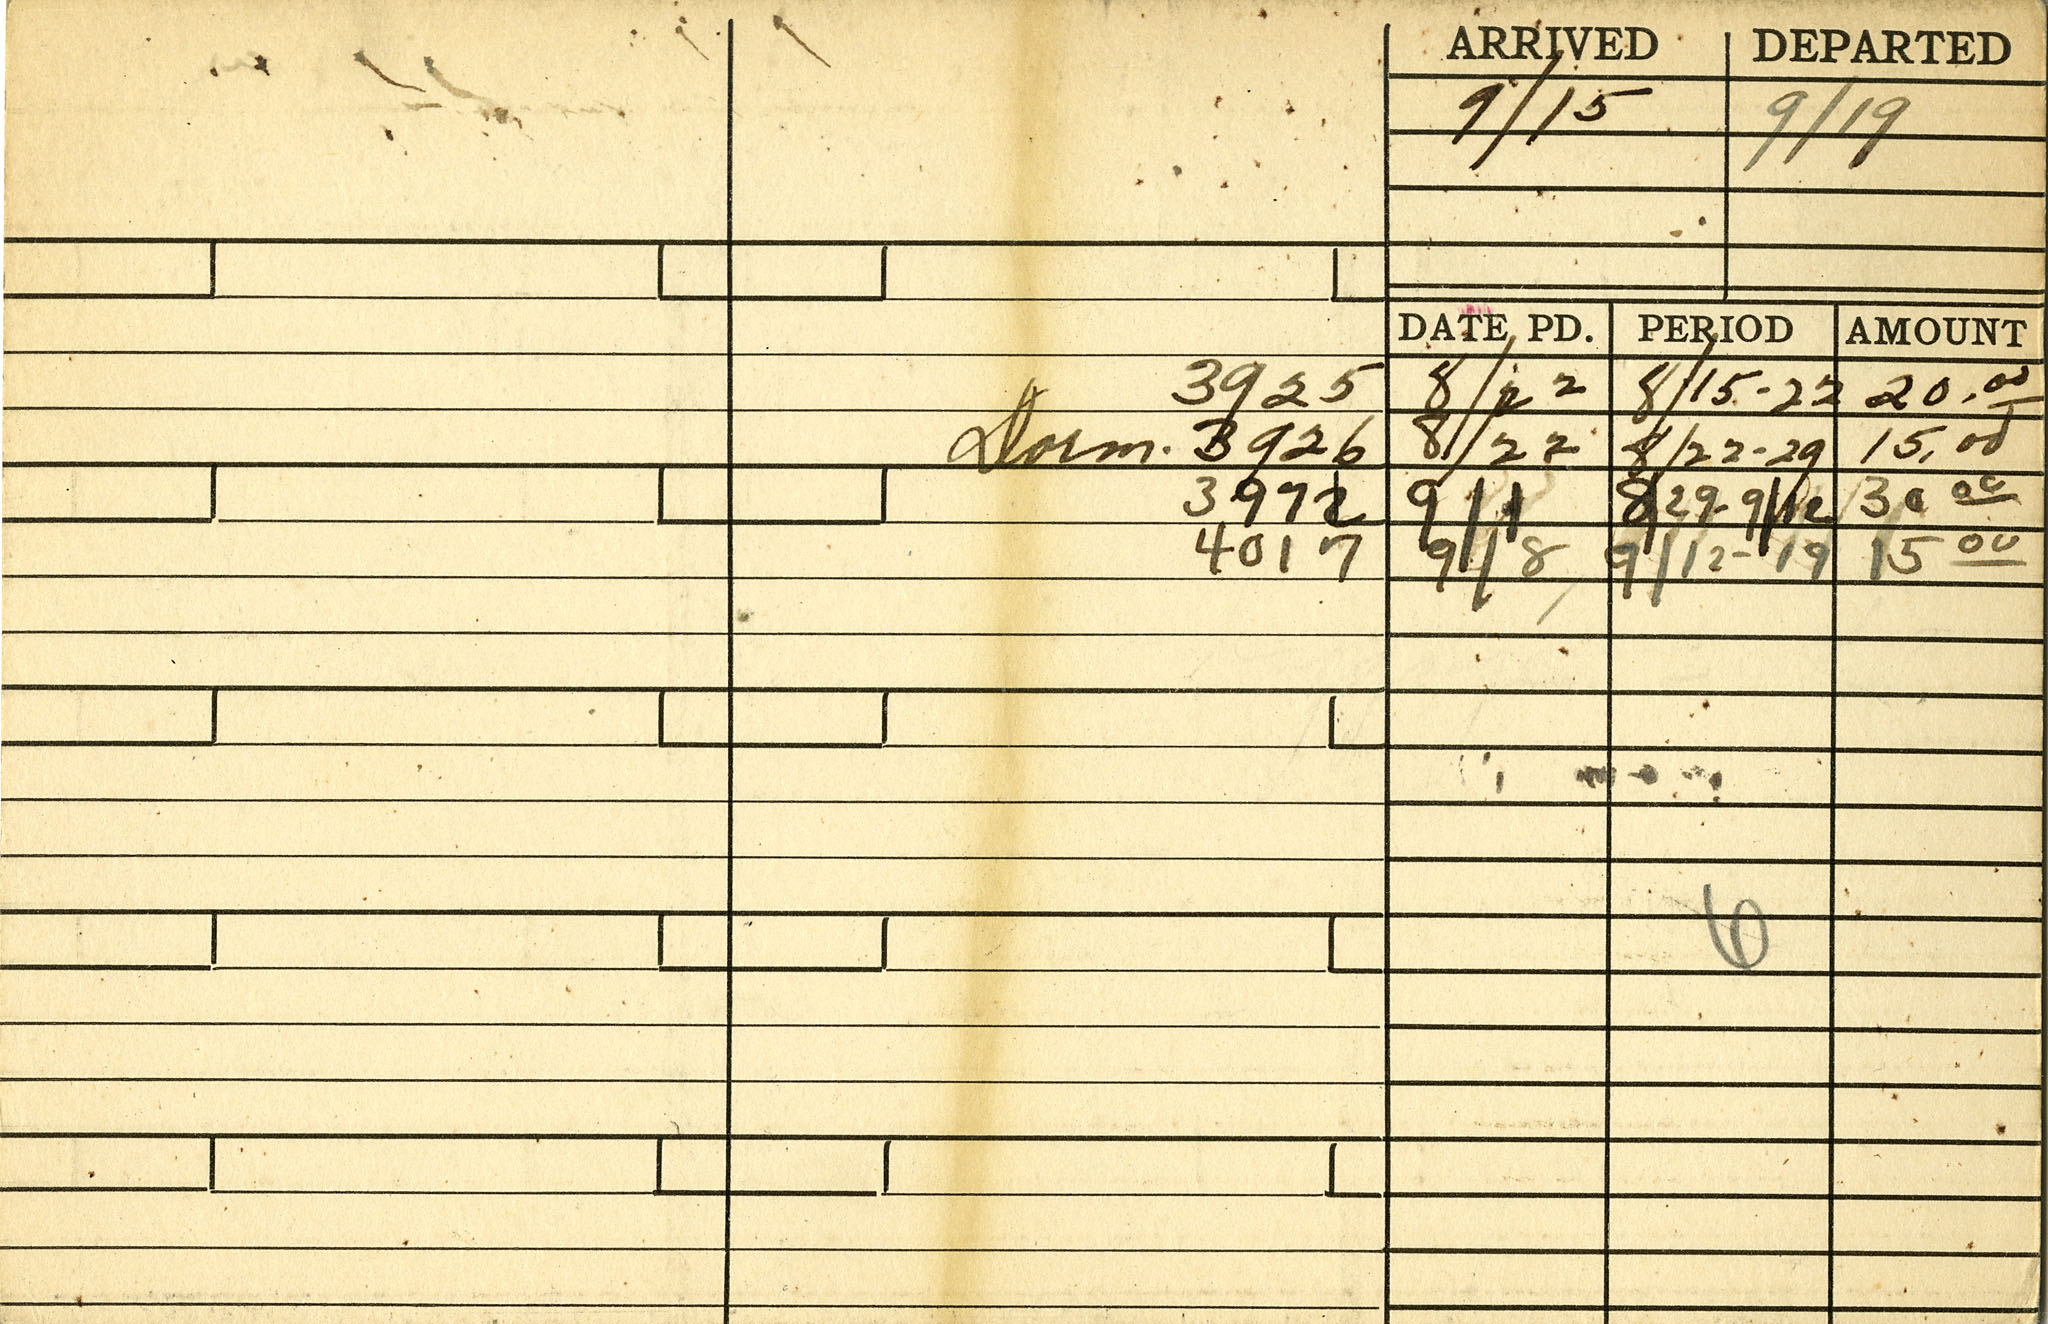 ARRIVED DEPARTED
9/15 9/19
DATE PD. PERIOD AMOUNT
3925 8/22 8/15-22 20.00
Dorm. 3926 8/22 8/22-29 15.00
3972 9/1 8/29-9/12 30 00
4017 9/8 9/12-19 15 00
6